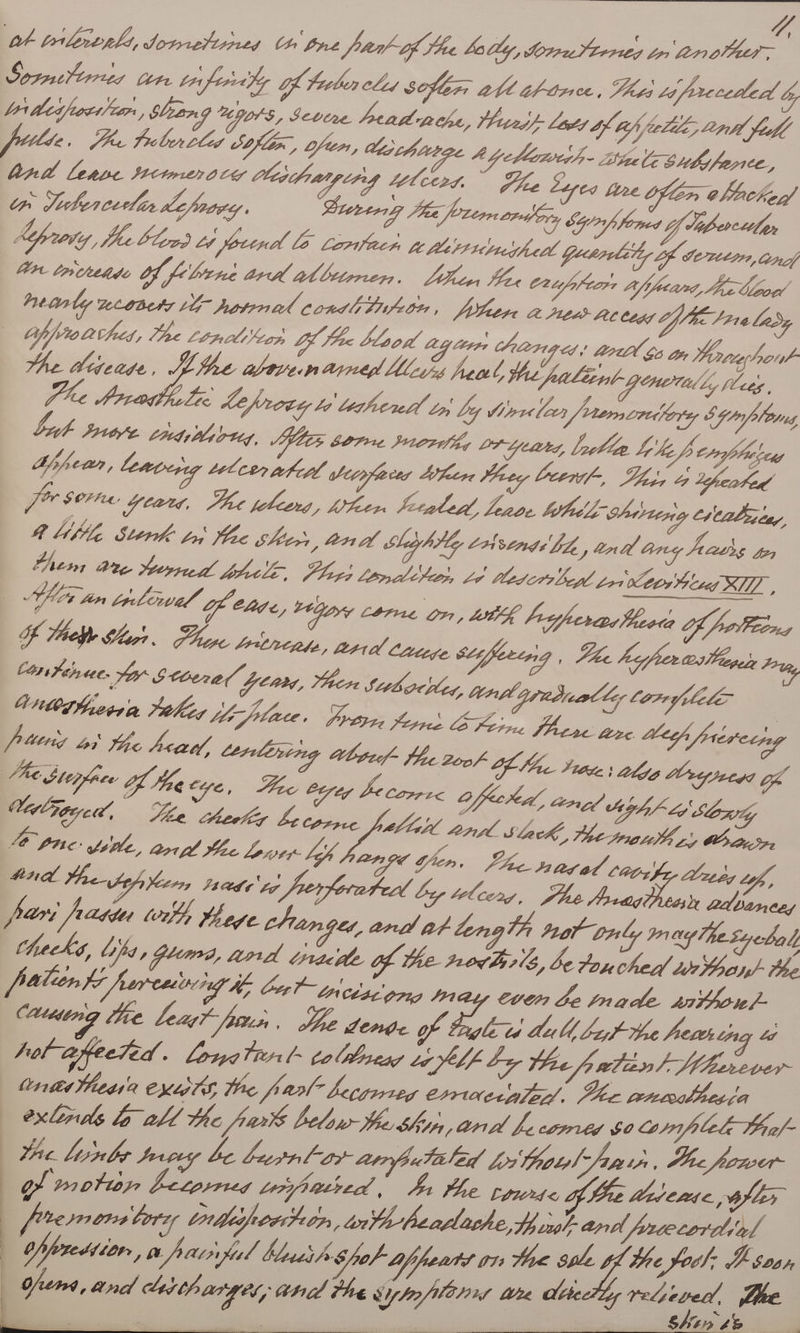 11.
at intervals, sometimes in one part of the body, sometimes in another.
Sometimes an infinity of tubercles soften all at once. This is preceded by
indisposition, strong rigors, severe head-ache, thirst, loss of appetite, and full
pulse. The tubercles soften, open, discharge a yellowish-white substance,
and leave numerous discharging ulcers. The Eyes are often attacked
in Tubercular Leprosy. During the premonitory symptoms of Tubercular
Leprosy, the blood is found to contain a diminished quantity of serum, and
an increase of fibrine and albumen. When the eruption appears, the blood
nearly recovers its normal constitution. When a new access of the malady
approaches, the condition of the blood again changes: and so on throughout
the disease. If the above-named Ulcers heal, the patient generally dies.
The Anæsthetic Leprosy is ushered in by similar premonitory symptoms,
but more insidious. After some months or years, bullæ like pemphigus
appear, leaving ulcerated surfaces when they burst. This is repeated
for some years. The ulcers, when healed, leave white shining cicatrices,
a little sunk in the skin, and slightly insensible, and any hairs on
them are turned white. This condition is described in Leviticus XIII.
After an interval of ease, rigors come on, with hyperæsthesia of portions
of the skin. These increase, and cause suffering. The hyperæsthesia may
continue for several years, then subsides, and gradually complete
anæsthesia takes its place. From time to time there are deep piercing
pains in the head, centering about the root of the nose: also dryness of
the surface of the eye. The eyes become affected, and sight is slowly
destroyed. The cheeks become pallid and slack, the mouth is drawn
to one side, and the lower lip hangs open. The nasal cavity dries up,
and the septum nasi is perforated by ulcers. The Anæsthesia advances
pari passu with these changes, and at length not only may the Eyeball,
cheeks, lips, gums, and inside of the nostrils, be touched without the
patient's perceiving it, but incisions may even be made without
causing the least pain. The sense of taste is dull, but the hearing is
not affected. Constant coldness is felt by the patient. Wherever
anæsthesia exists, the part becomes emaciated. The anæsthesia
extends to all the parts below the skin, and becomes so complete that
the limbs may be burnt or amputated without pain. The power
of motion becomes impaired. In the course of the disease, after
premonitory indisposition, with headache, thirst, and præcordial
oppression, a painful bluish spot appears on the sole of the foot. It soon
opens, and discharges; and the symptoms are directly relieved. The
skin is